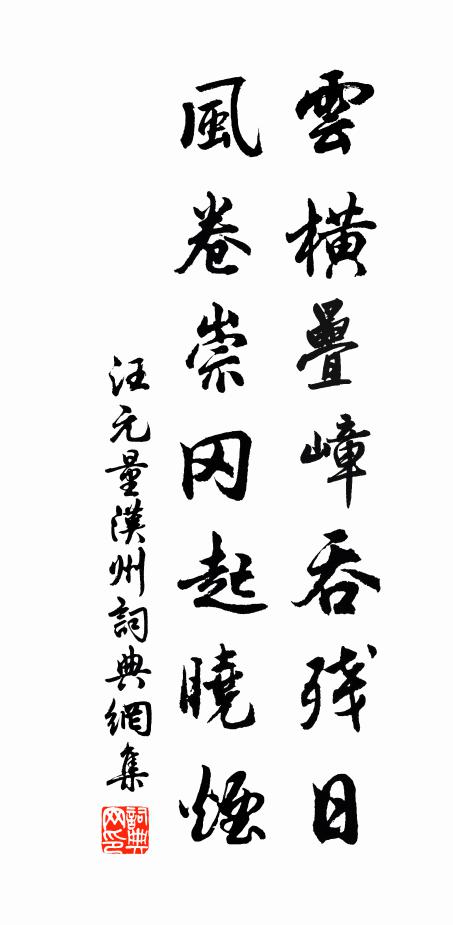 雲橫疊嶂吞殘日
風卷崇冈起曉煙
汪元量漢州詞典網集
詞典网印